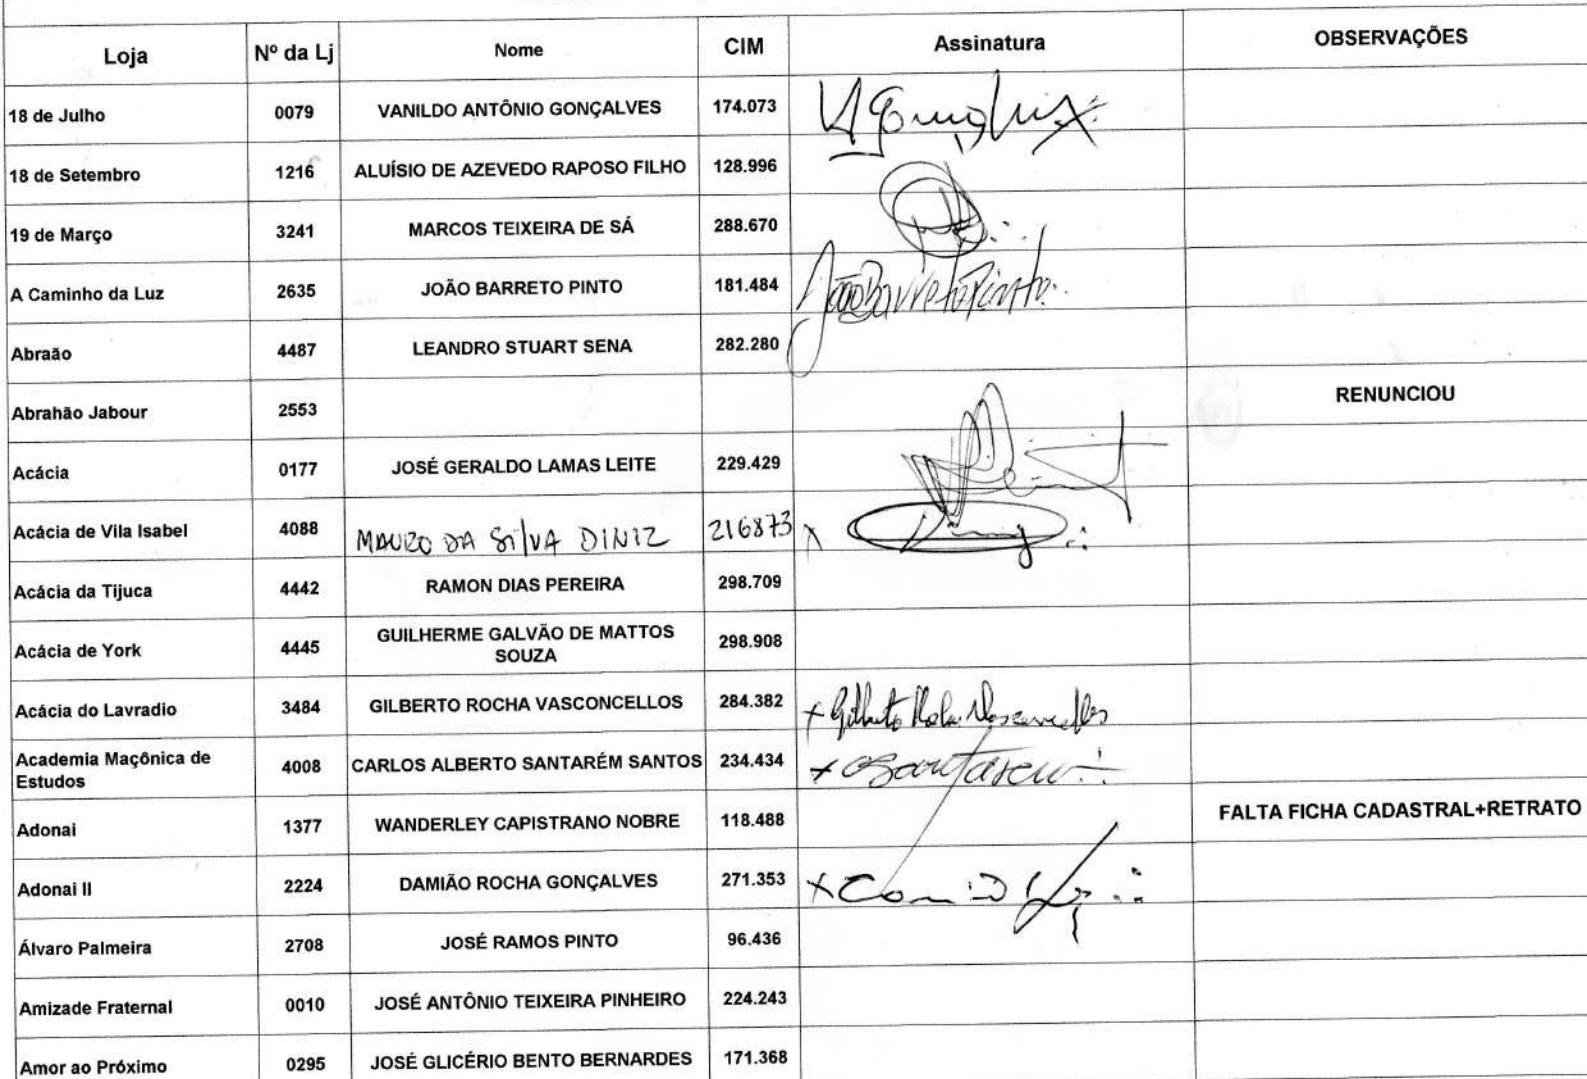 Loja Nº da Lj Nome CIM Assinatura OBSERVAÇÕES
18 de Julho 0079 VANILDO ANTÔNIO GONÇALVES 174.073
18 de Setembro 1216 ALUÍSIO DE AZEVEDO RAPOSO FILHO 128.996
19 de Março 3241 MARCOS TEIXEIRA DE SÁ 288.670
A Caminho da Luz 2635 JOÃO BARRETO PINTO 181.484 João Barreto Pinto
Abraão 4487 LEANDRO STUART SENA 282.280
Abrahão Jabour 2553 RENUNCIOU
Acácia 0177 JOSÉ GERALDO LAMAS LEITE 229.429
Acácia de Vila Isabel 4088 MAURO DA SILVA DINIZ 216873 x
Acácia da Tijuca 4442 RAMON DIAS PEREIRA 298.709
Acácia de York 4445 GUILHERME GALVÃO DE MATTOS
SOUZA 298.908
Acácia do Lavradio 3484 GILBERTO ROCHA VASCONCELLOS 284.382 x Gilberto Rocha Vasconcellos
Academia Maçônica de
Estudos 4008 CARLOS ALBERTO SANTARÉM SANTOS 234.434 x
Adonai 1377 WANDERLEY CAPISTRANO NOBRE 118.488 FALTA FICHA CADASTRAL+RETRATO
Adonai II 2224 DAMIÃO ROCHA GONÇALVES 271.353 x
Álvaro Palmeira 2708 JOSÉ RAMOS PINTO 96.436
Amizade Fraternal 0010 JOSÉ ANTÔNIO TEIXEIRA PINHEIRO 224.243
Amor ao Próximo 0295 JOSÉ GLICÉRIO BENTO BERNARDES 171.368